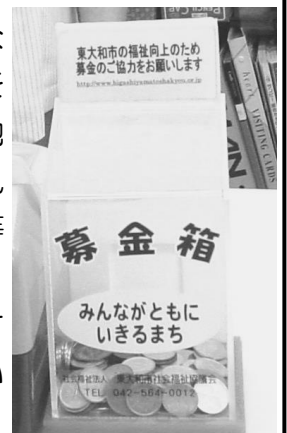 東大和市の福祉向上のため
募金のご協力をお願いします
http://www.higashiyamatoshakyo.or.jp
募金箱
みんながともに
いきるまち
社会福祉法人 東大和市社会福祉協議会
TEL 042-564-0012
VISITING CARDS